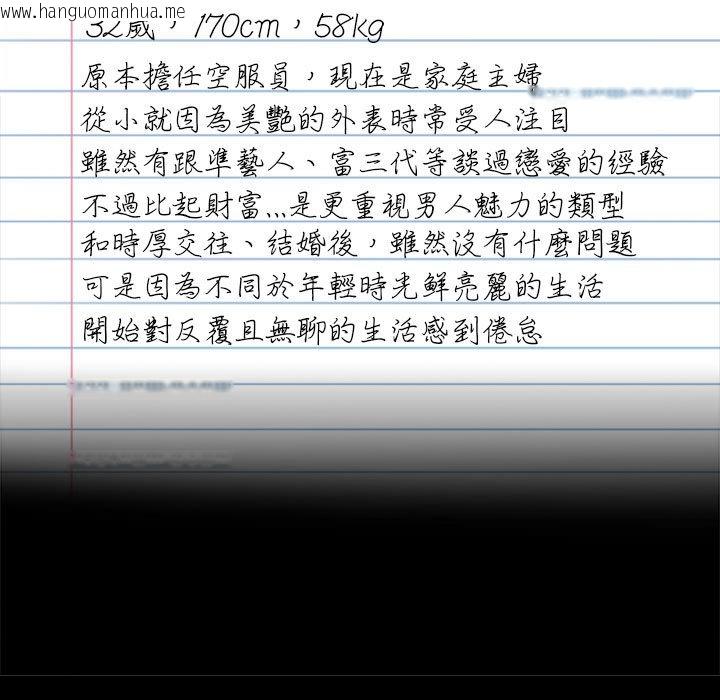 www.hanguomanhua.me
32歲，170cm，58kg
原本擔任空服員，現在是家庭主婦
從小就因為美艷的外表時常受人注目
雖然有跟準藝人、富三代等談過戀愛的經驗
不過比起財富...是更重視男人魅力的類型
和時厚交往、結婚後，雖然沒有什麼問題
可是因為不同於年輕時光鮮亮麗的生活
開始對反覆且無聊的生活感到倦怠